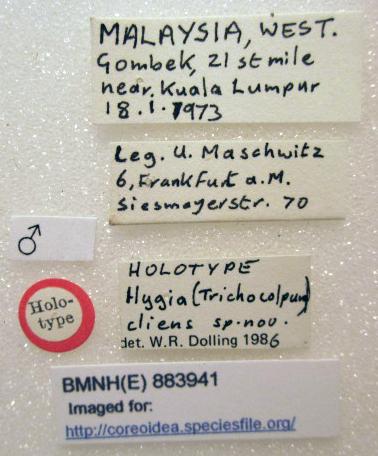 MALAYSIA, WEST.
Gombek, 21st mile
near. Kuala Lumpur
18.1.1973
Leg. U. Maschwitz
6, Frankfurt a.M.
Siesmayerstr. 70
♂
Holo-
type
HOLOTYPE
Hygia (Trichocolpura)
cliens sp.nov.
det. W.R. Dolling 1986
BMNH(E) 883941
Imaged for:
http://coreoidea.speciesfile.org/